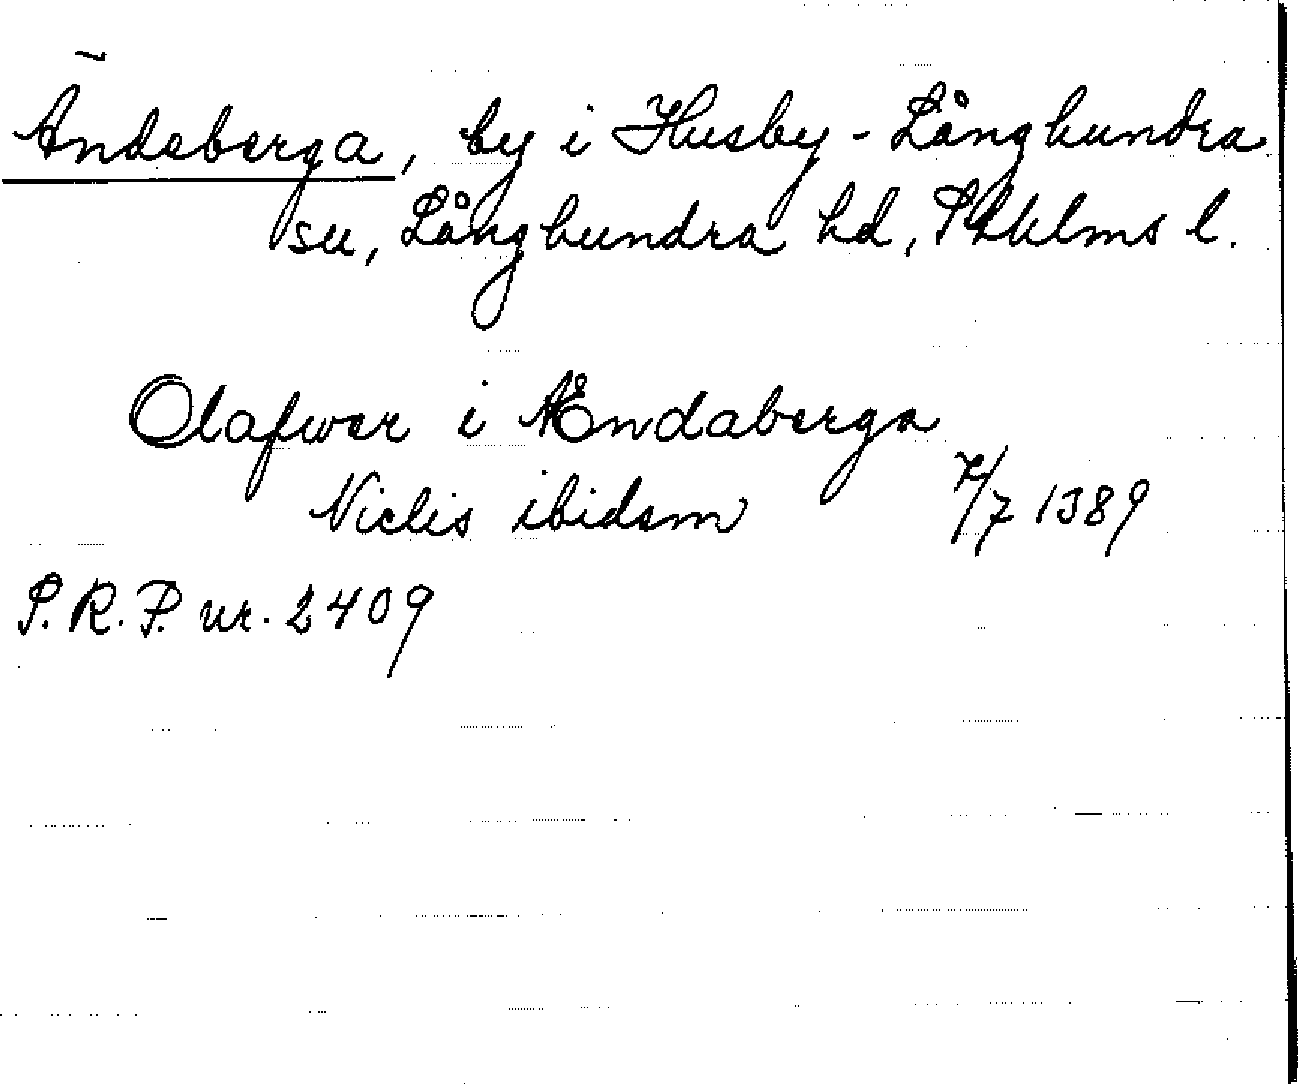 Ändeberga, by i Husby-Långhundra
sn, Långhundra hd, Sthlms l.
Olafwer i Ændaberga
Niclis ibidem 7/7 1389
S.R.P. nr. 2409